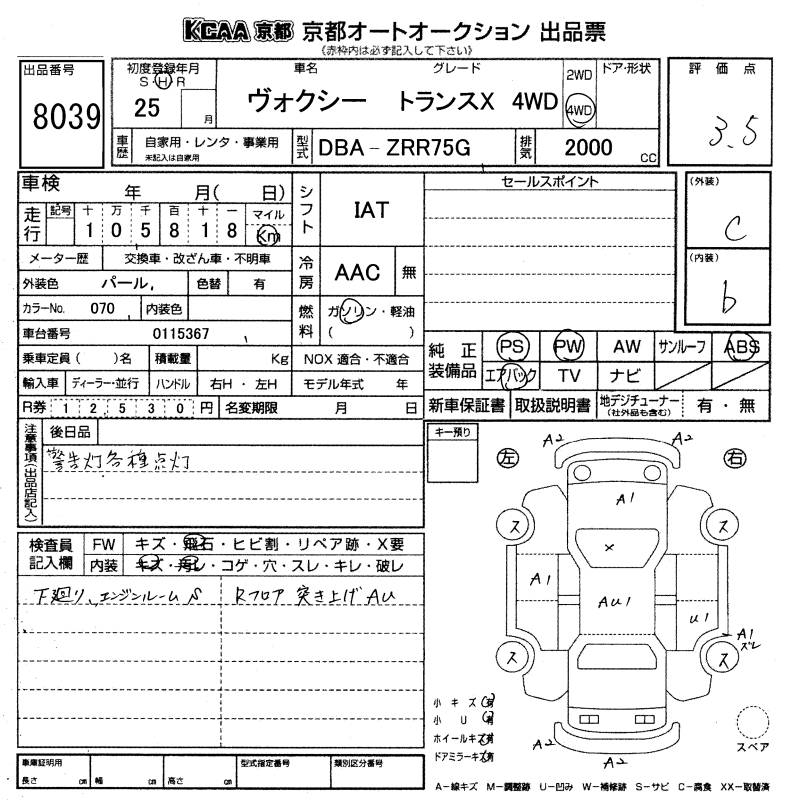 KCAA 京都 京都オートオークション 出品票
《赤枠内は必ず記入して下さい》
出品番号
8039
初度登録年月
S・H・R
25 月
車名 グレード
ヴォクシー トランスX 4WD
2WD
4WD
ドア・形状
評価点
3.5
車歴
自家用・レンタ・事業用
未記入は自家用
型式
DBA-ZRR75G
排気
2000 cc
車検 年 月( 日)
走行
記号 十 万 千 百 十 一 マイル
1 0 5 8 1 8 Km
シフト
IAT
セールスポイント
(外装)
C
(内装)
b
メーター歴 交換車・改ざん車・不明車
外装色 パール, 色替 有
カラーNo. 070 内装色
車台番号 0115367
冷房
AAC 無
燃料
ガソリン・軽油
( )
乗車定員( )名 積載量 Kg NOX 適合・不適合
輸入車 ディーラー・並行 ハンドル 右H・左H モデル年式 年
R券 1 2 5 3 0 円 名変期限 月 日
純正装備品
PS PW AW サンルーフ ABS
エアバック TV ナビ
新車保証書 取扱説明書 地デジチューナー (社外品も含む) 有・無
注意事項(出品店記入)
後日品
警告灯各種点灯
キー預り
左 右
A2 A2
A1
ス ス
×
A1 AU1 U1
A1
ズレ
ス ス
A2 A2
検査員記入欄
FW キズ・飛石・ヒビ割・リペア跡・X要
内装 キズ・汚レ・コゲ・穴・スレ・キレ・破レ
下廻り、エンジンルームS Rフロア 突き上げAU
小キズ(有)
小 U (有)
ホイールキズ(有)
ドアミラーキズ(有)
スペア
車庫証明用
長さ cm 幅 cm 高さ cm
型式指定番号
類別区分番号
A-線キズ M-調整跡 U-凹み W-補修跡 S-サビ C-腐食 XX-取替済